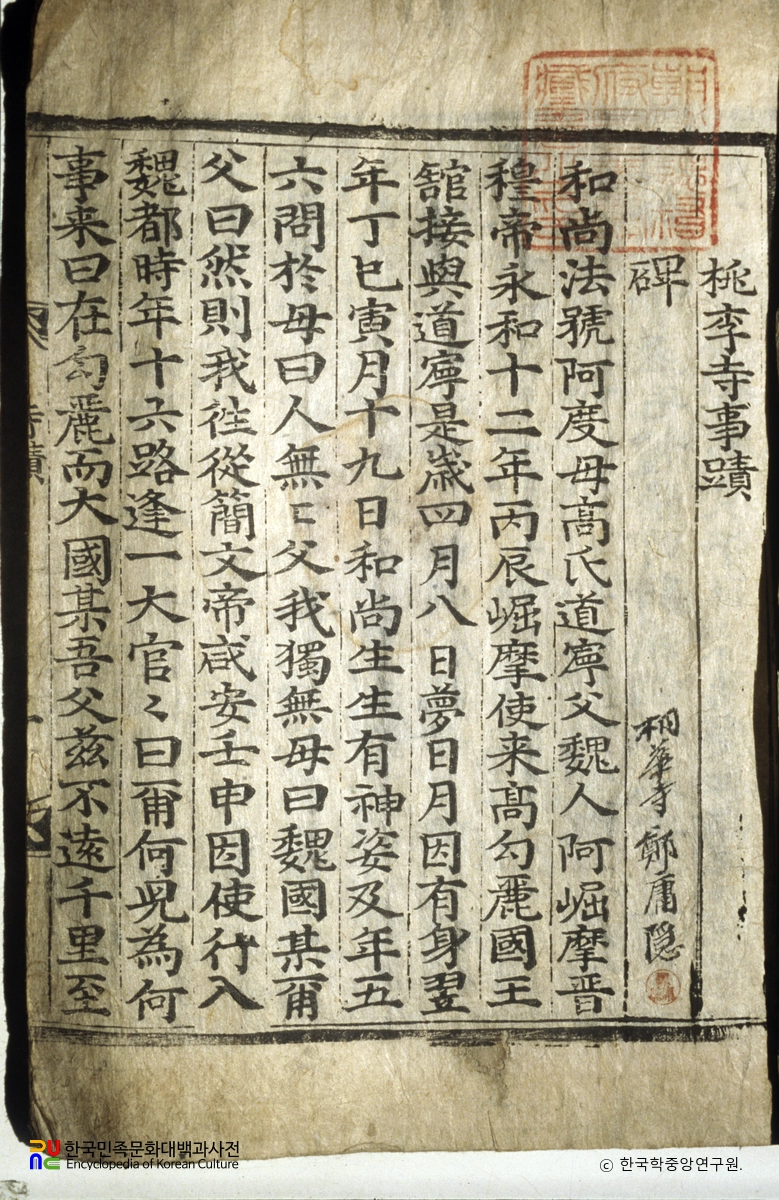 桃李寺事蹟
碑 桐華寺 鄭庸隱
和尚法號阿度母高氏道寧父魏人阿崛摩晋
穆帝永和十二年丙辰崛摩使来髙勾麗國王
舘接與道寧是歲四月八日夢日月因有身翌
年丁巳寅月十九日和尚生生有神姿及年五
六問於母曰人無〻父我獨無母曰魏國某爾
父曰然則我徃從簡文帝咸安壬申因使行入
魏都時年十六路逢一大官〻曰爾何児為何
事来曰在勾麗而大國某吾父茲不遠千里至
寺蹟
한국민족문화대백과사전
Encyclopedia of Korean Culture
ⓒ 한국학중앙연구원.